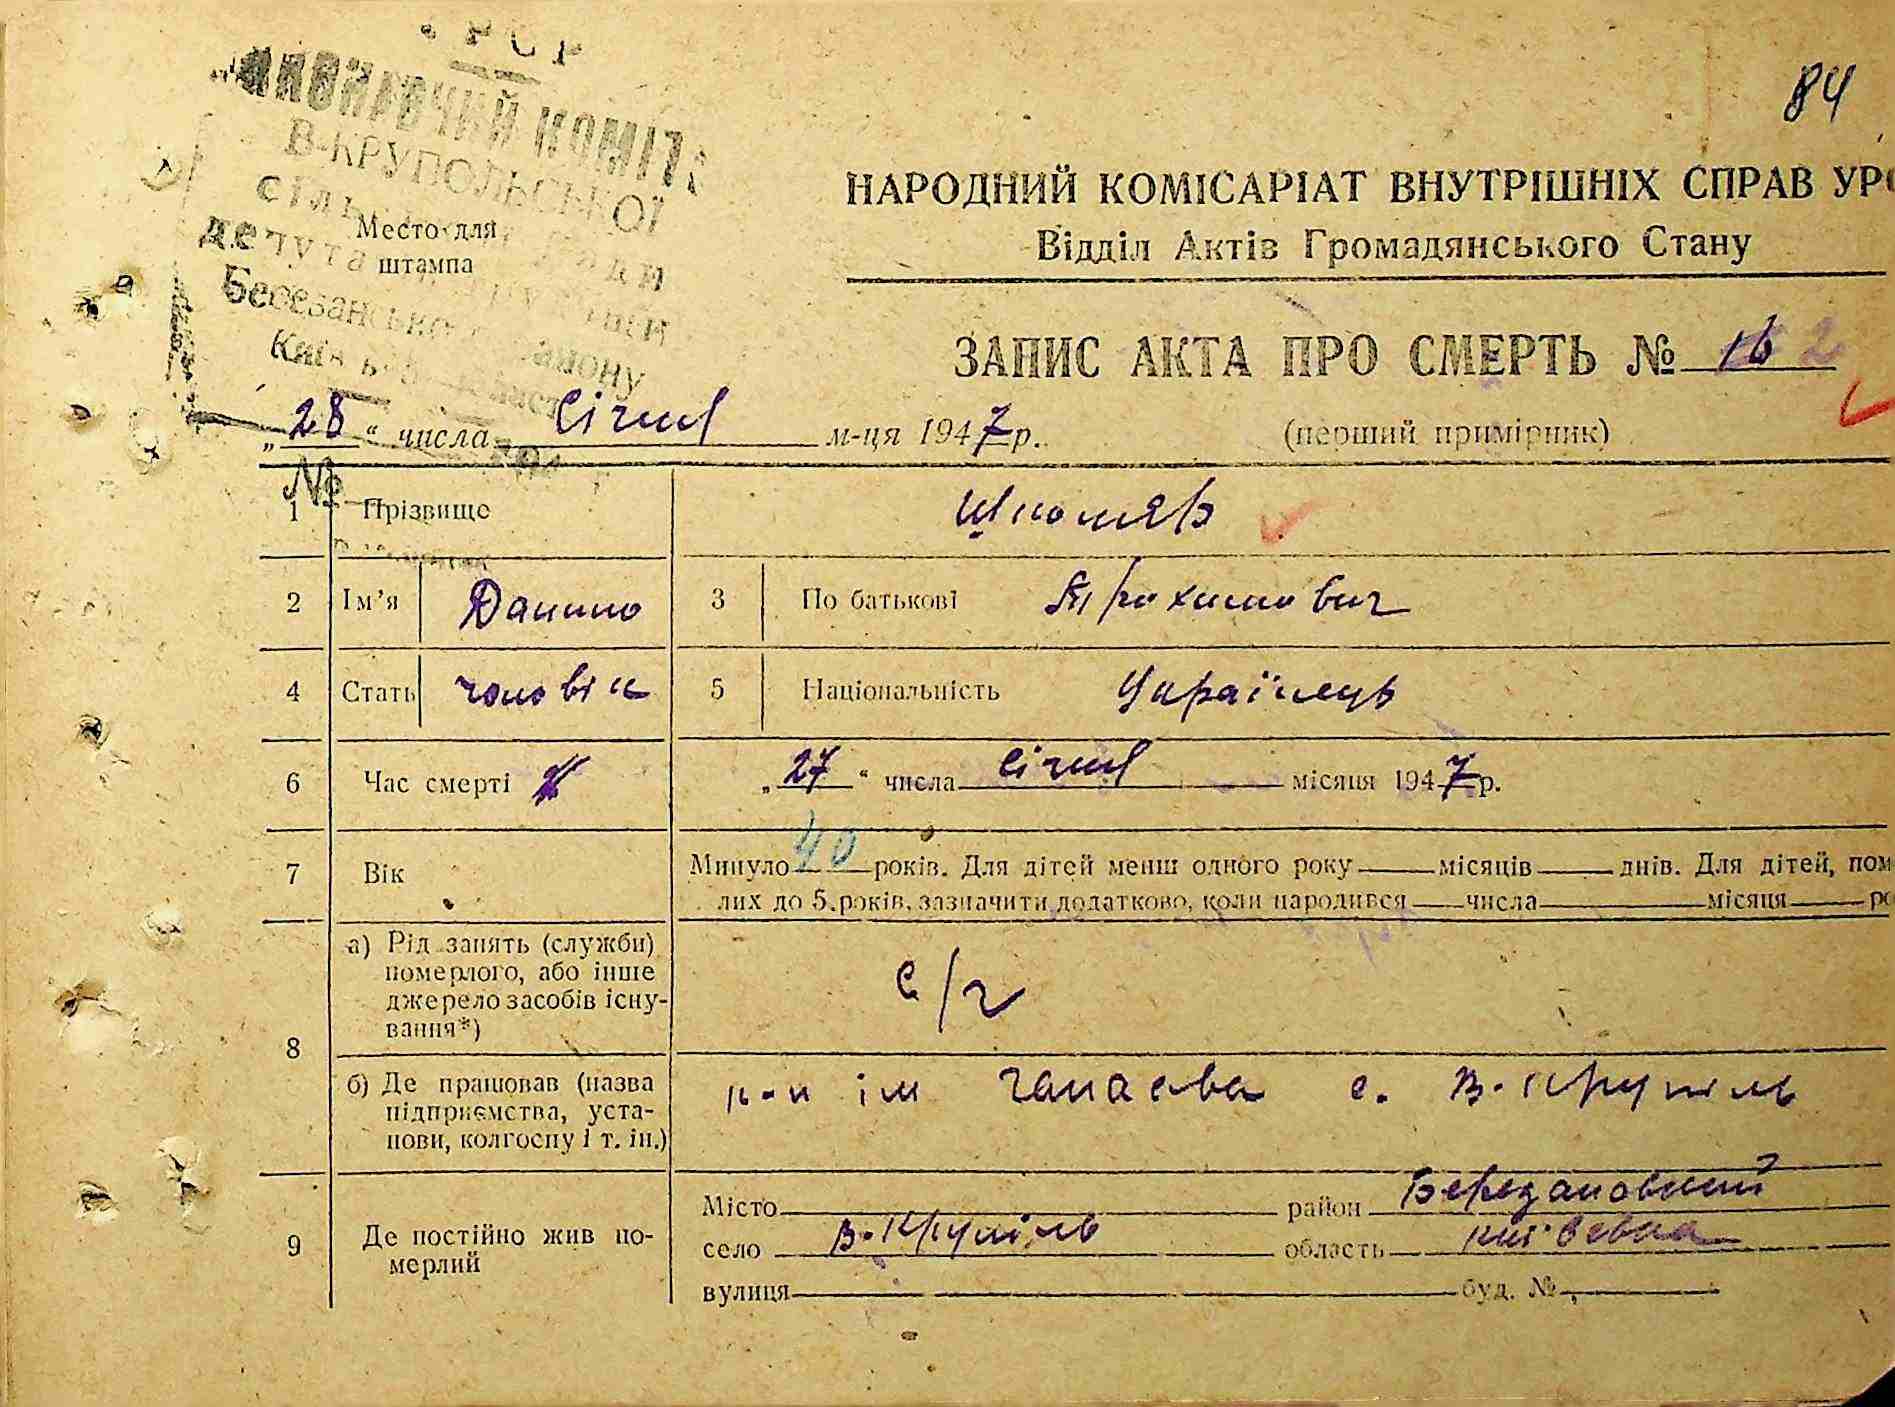 РСР
ВИКОНАВЧИЙ КОМІТ
В-КРУПОЛЬСЬКОЇ
Місто для
штампа
84
НАРОДНИЙ КОМІСАРІАТ ВНУТРІШНІХ СПРАВ УРС
Відділ Актів Громадянського Стану
ЗАПИС АКТА ПРО СМЕРТЬ № 16
„28“ числа Січня м-ця 1947 р. (перший примірник)
№
1 Прізвище
2 Ім’я Данило 3 По батькові
4 Стать чоловік 5 Національність Українець
6 Час смерті „27“ числа Січня місяця 1947 р.
7 Вік Минуло 40 років. Для дітей менш одного року місяців днів. Для дітей, пом
лих до 5 років, зазначити додатково, коли народився числа місяця ро
8 а) Рід занять (служби)
померлого, або інше
джерело засобівісну-
вання*) с/г
б) Де працював (назва
підприємства, уста-
нови, колгоспу і т. ін.) к-п ім Чапаєва с. В-Крупіль
9 Де постійно жив по-
мерлий
Місто район
село В-Крупіль область
вулиця буд. №